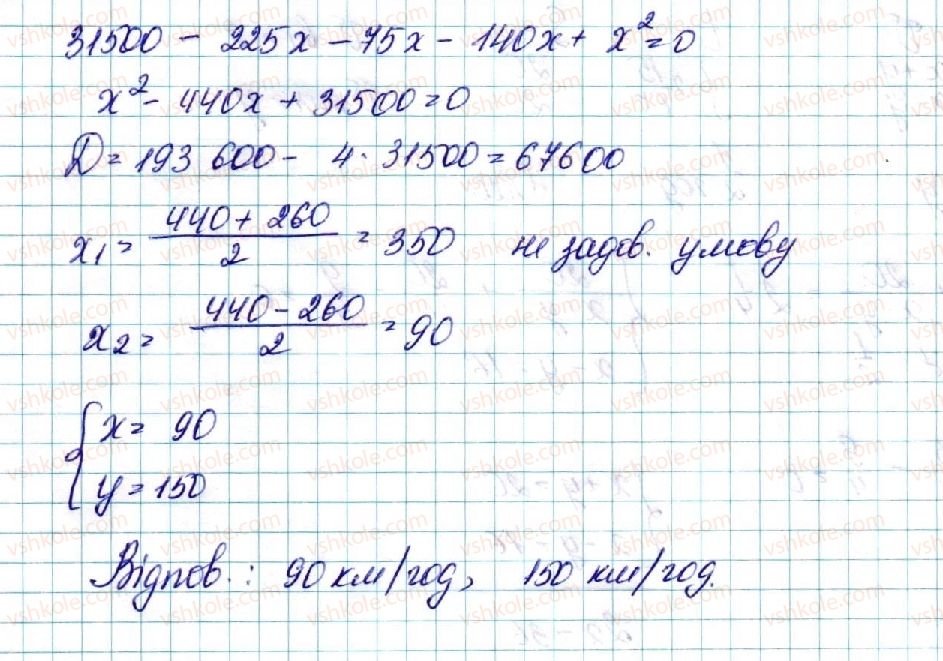 31500 - 225x - 75x - 140x + x² = 0
x² - 440x + 31500 = 0
D = 193 600 - 4 · 31500 = 67600
x₁ = (440 + 260)/2 = 350 не задов. умову
x₂ = (440 - 260)/2 = 90
{ x = 90
y = 150
Відпов.: 90 км/год, 150 км/год.